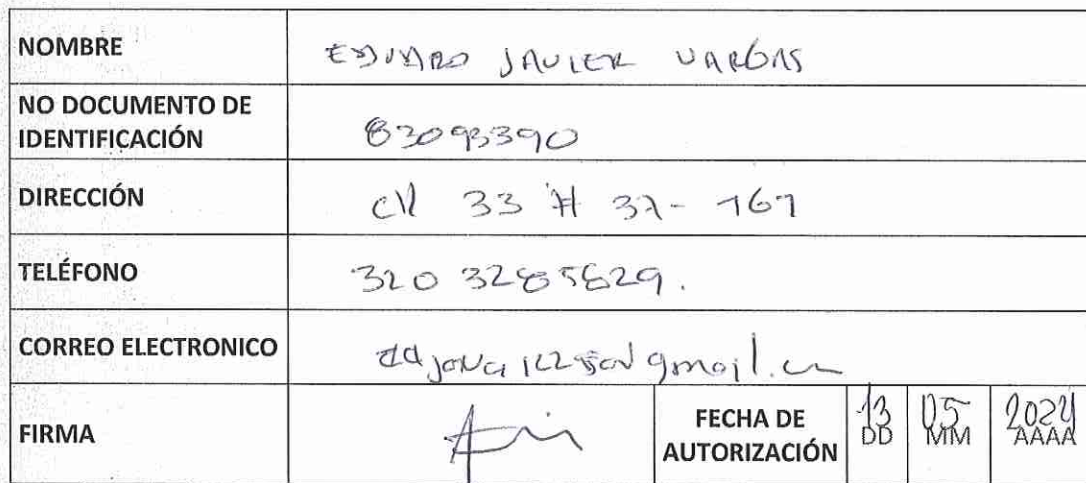 NOMBRE EDUARO JAVIER VARGAS
NO DOCUMENTO DE
IDENTIFICACIÓN 83093390
DIRECCIÓN CR 33 # 37- 167
TELÉFONO 320 3285829.
CORREO ELECTRONICO gmail.
FIRMA
FECHA DE
AUTORIZACIÓN
13 05 2024
DD MM AAAA